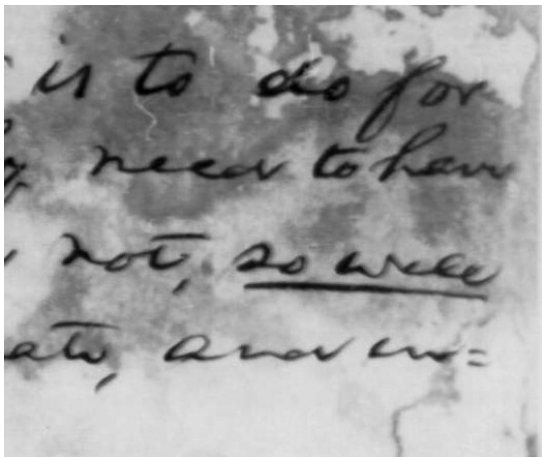 is to do for
need to have
not, so well
and in=